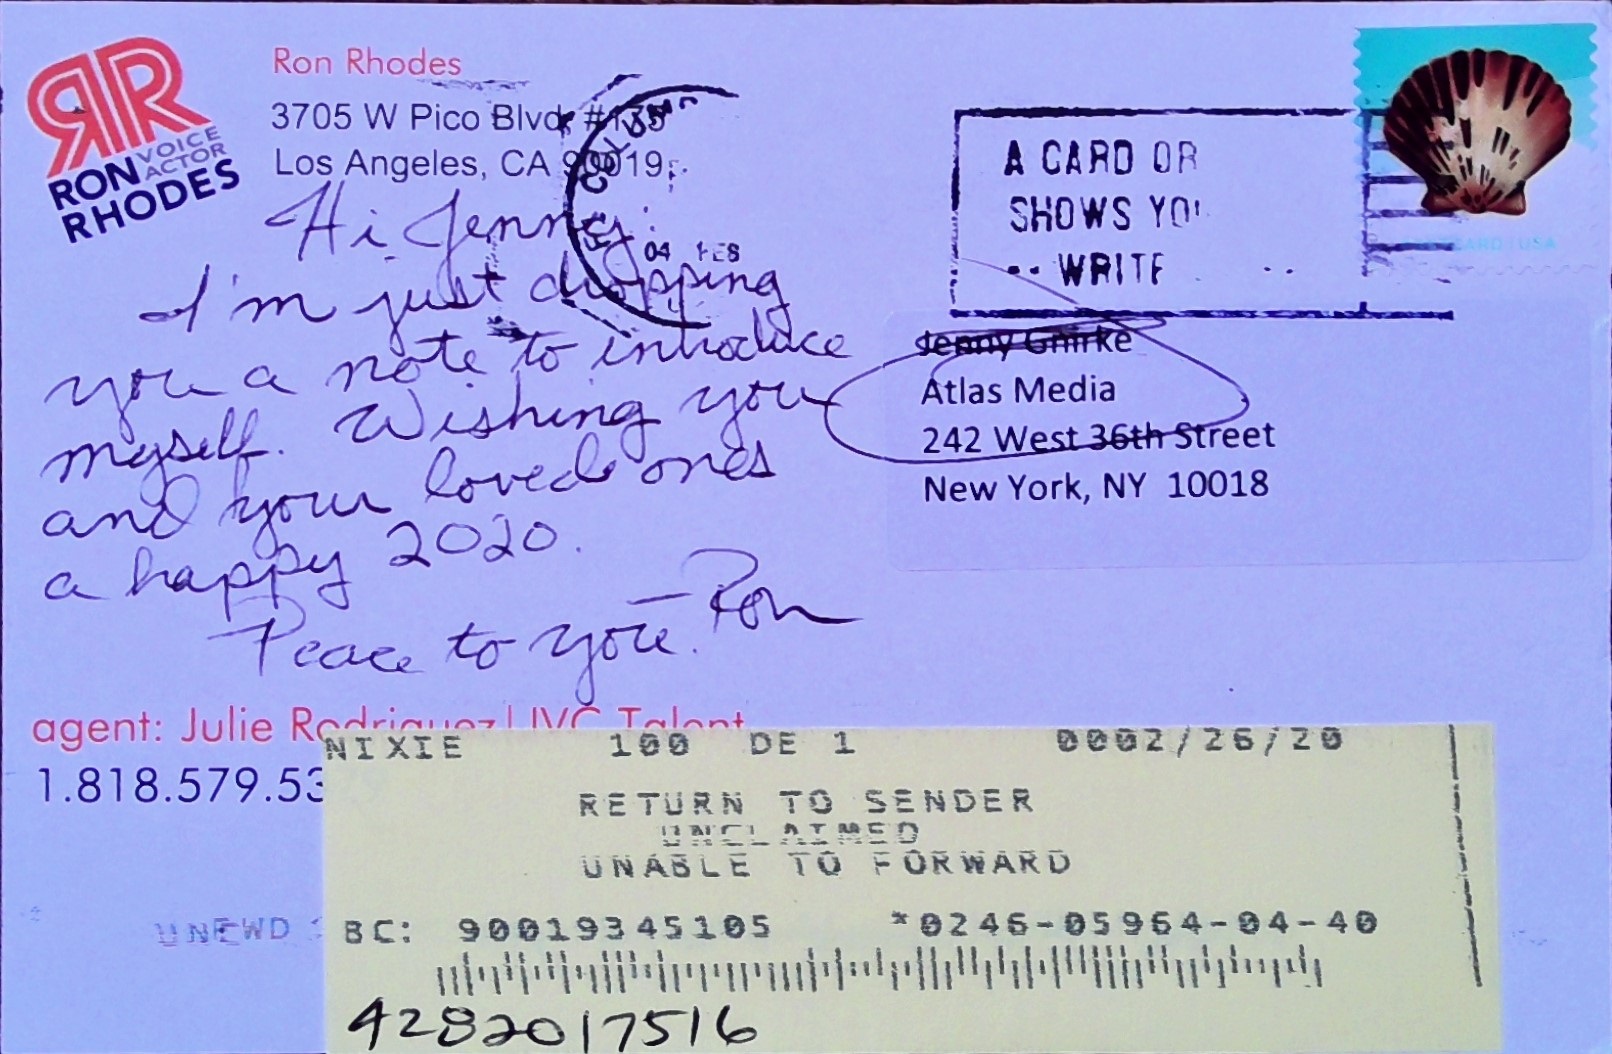 RR
RON VOICE
ACTOR
RHODES
Ron Rhodes
3705 W Pico Blvd #135
Los Angeles, CA 90019
04 FEB
A CARD OR
SHOWS YO
WRITE
USA
Hi Jenny:
I'm just dropping
you a note to introduce
myself. Wishing you
and your loved ones
a happy 2020.
Peace to you. – Ron
Jenny
Atlas Media
242 West 36th Street
New York, NY 10018
agent: Julie Rodriguez | JVC Talent
1.818.579.53
NIXIE 100 DE 1 0002/26/20
RETURN TO SENDER
UNCLAIMED
UNABLE TO FORWARD
BC: 90019345105 *0246-05964-04-40
4282017516